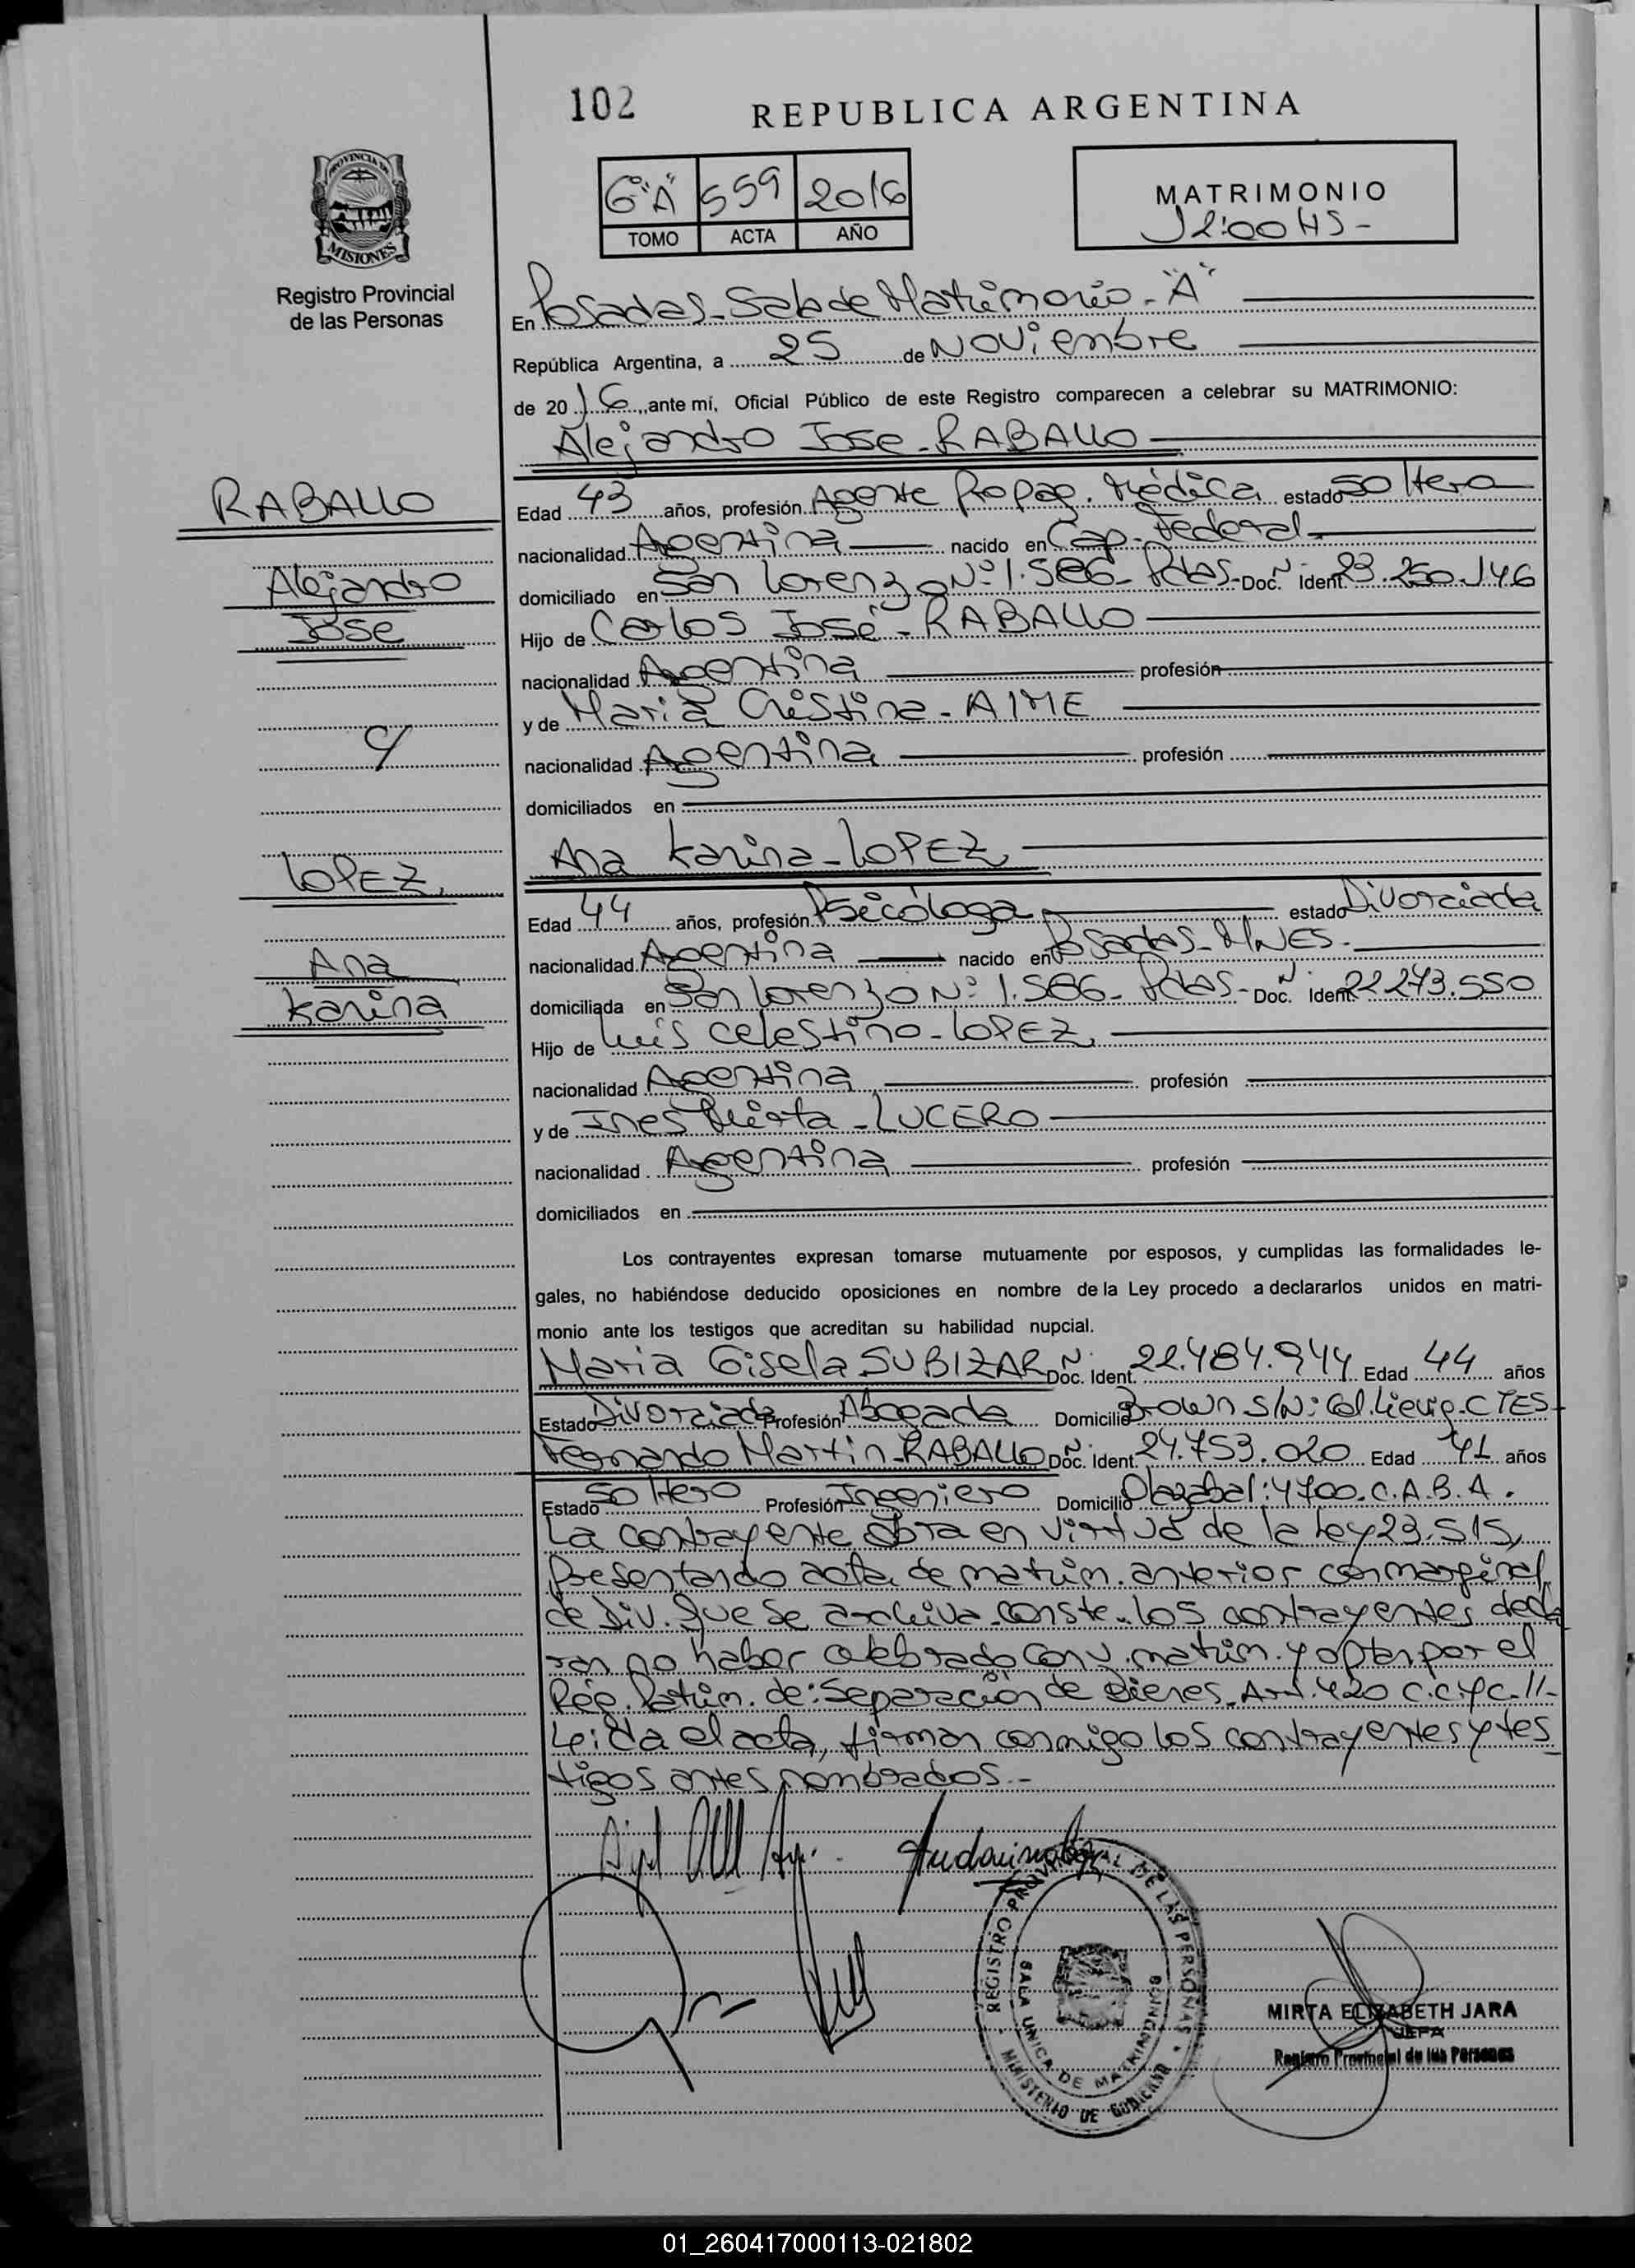 102
REPUBLICA ARGENTINA
PROVINCIA DE
MISIONES
Registro Provincial
de las Personas
6º"A" 559 2016
TOMO ACTA AÑO
MATRIMONIO
12:00 HS-
En Posadas-Sala de Matrimonio-"A"
República Argentina, a 25 de Noviembre
de 2016, ante mí, Oficial Público de este Registro comparecen a celebrar su MATRIMONIO:
Alejandro Jose-RABALLO
RABALLO
Alejandro
Jose
Edad 43 años, profesión Agente Propag. Médica estado Soltero
nacionalidad Argentina nacido en Cap. Federal
domiciliado en San Lorenzo Nº 1.586- Pdas- Doc. Nº Ident. 23.250.146
Hijo de Carlos José-RABALLO
nacionalidad Argentina profesión
y de Maria Cristina-AIME
c/
nacionalidad Argentina profesión
domiciliados en
Ana Karina-LOPEZ
LOPEZ
Ana
Karina
Edad 44 años, profesión Psicóloga estado Divorciada
nacionalidad Argentina nacido en Posadas-MNES-
domiciliada en San Lorenzo Nº 1.586- Pdas- Doc. Nº Ident. 22.273.550
Hijo de Luis Celestino-LOPEZ
nacionalidad Argentina profesión
y de Ines Mirta-LUCERO
nacionalidad Argentina profesión
domiciliados en
Los contrayentes expresan tomarse mutuamente por esposos, y cumplidas las formalidades le-
gales, no habiéndose deducido oposiciones en nombre de la Ley procedo a declararlos unidos en matri-
monio ante los testigos que acreditan su habilidad nupcial.
Maria Gisela SUBIZAR Doc. Nº Ident. 22.484.944 Edad 44 años
Estado Divorciada Profesión Abogada Domicilio Brown S/N: Col. Liebig-CTES-
Fernando Martin-RABALLO Doc. Nº Ident. 24.753.020 Edad 41 años
Estado Soltero Profesión Ingeniero Domicilio Olazabal: 4700.C.A.B.A.
La contrayente obra en virtud de la Ley 23.515,
Presentando acta de matrim. anterior con marginal
de Div. que se archiva-conste-los contrayentes decla
ran no haber celebrado Conv. matrim. y optan por el
Rég. Patrim. de: Separación de Bienes-Art. 420 C.C.y C.-//-
Leída el acta, firman conmigo los contrayentes y tes
tigos antes nombrados.-
REGISTRO PROVINCIAL DE LAS PERSONAS
SALA UNICA DE MATRIMONIOS
MINISTERIO DE GOBIERNO
MIRTA ELIZABETH JARA
JEFA
Registro Provincial de las Personas
01_260417000113-021802